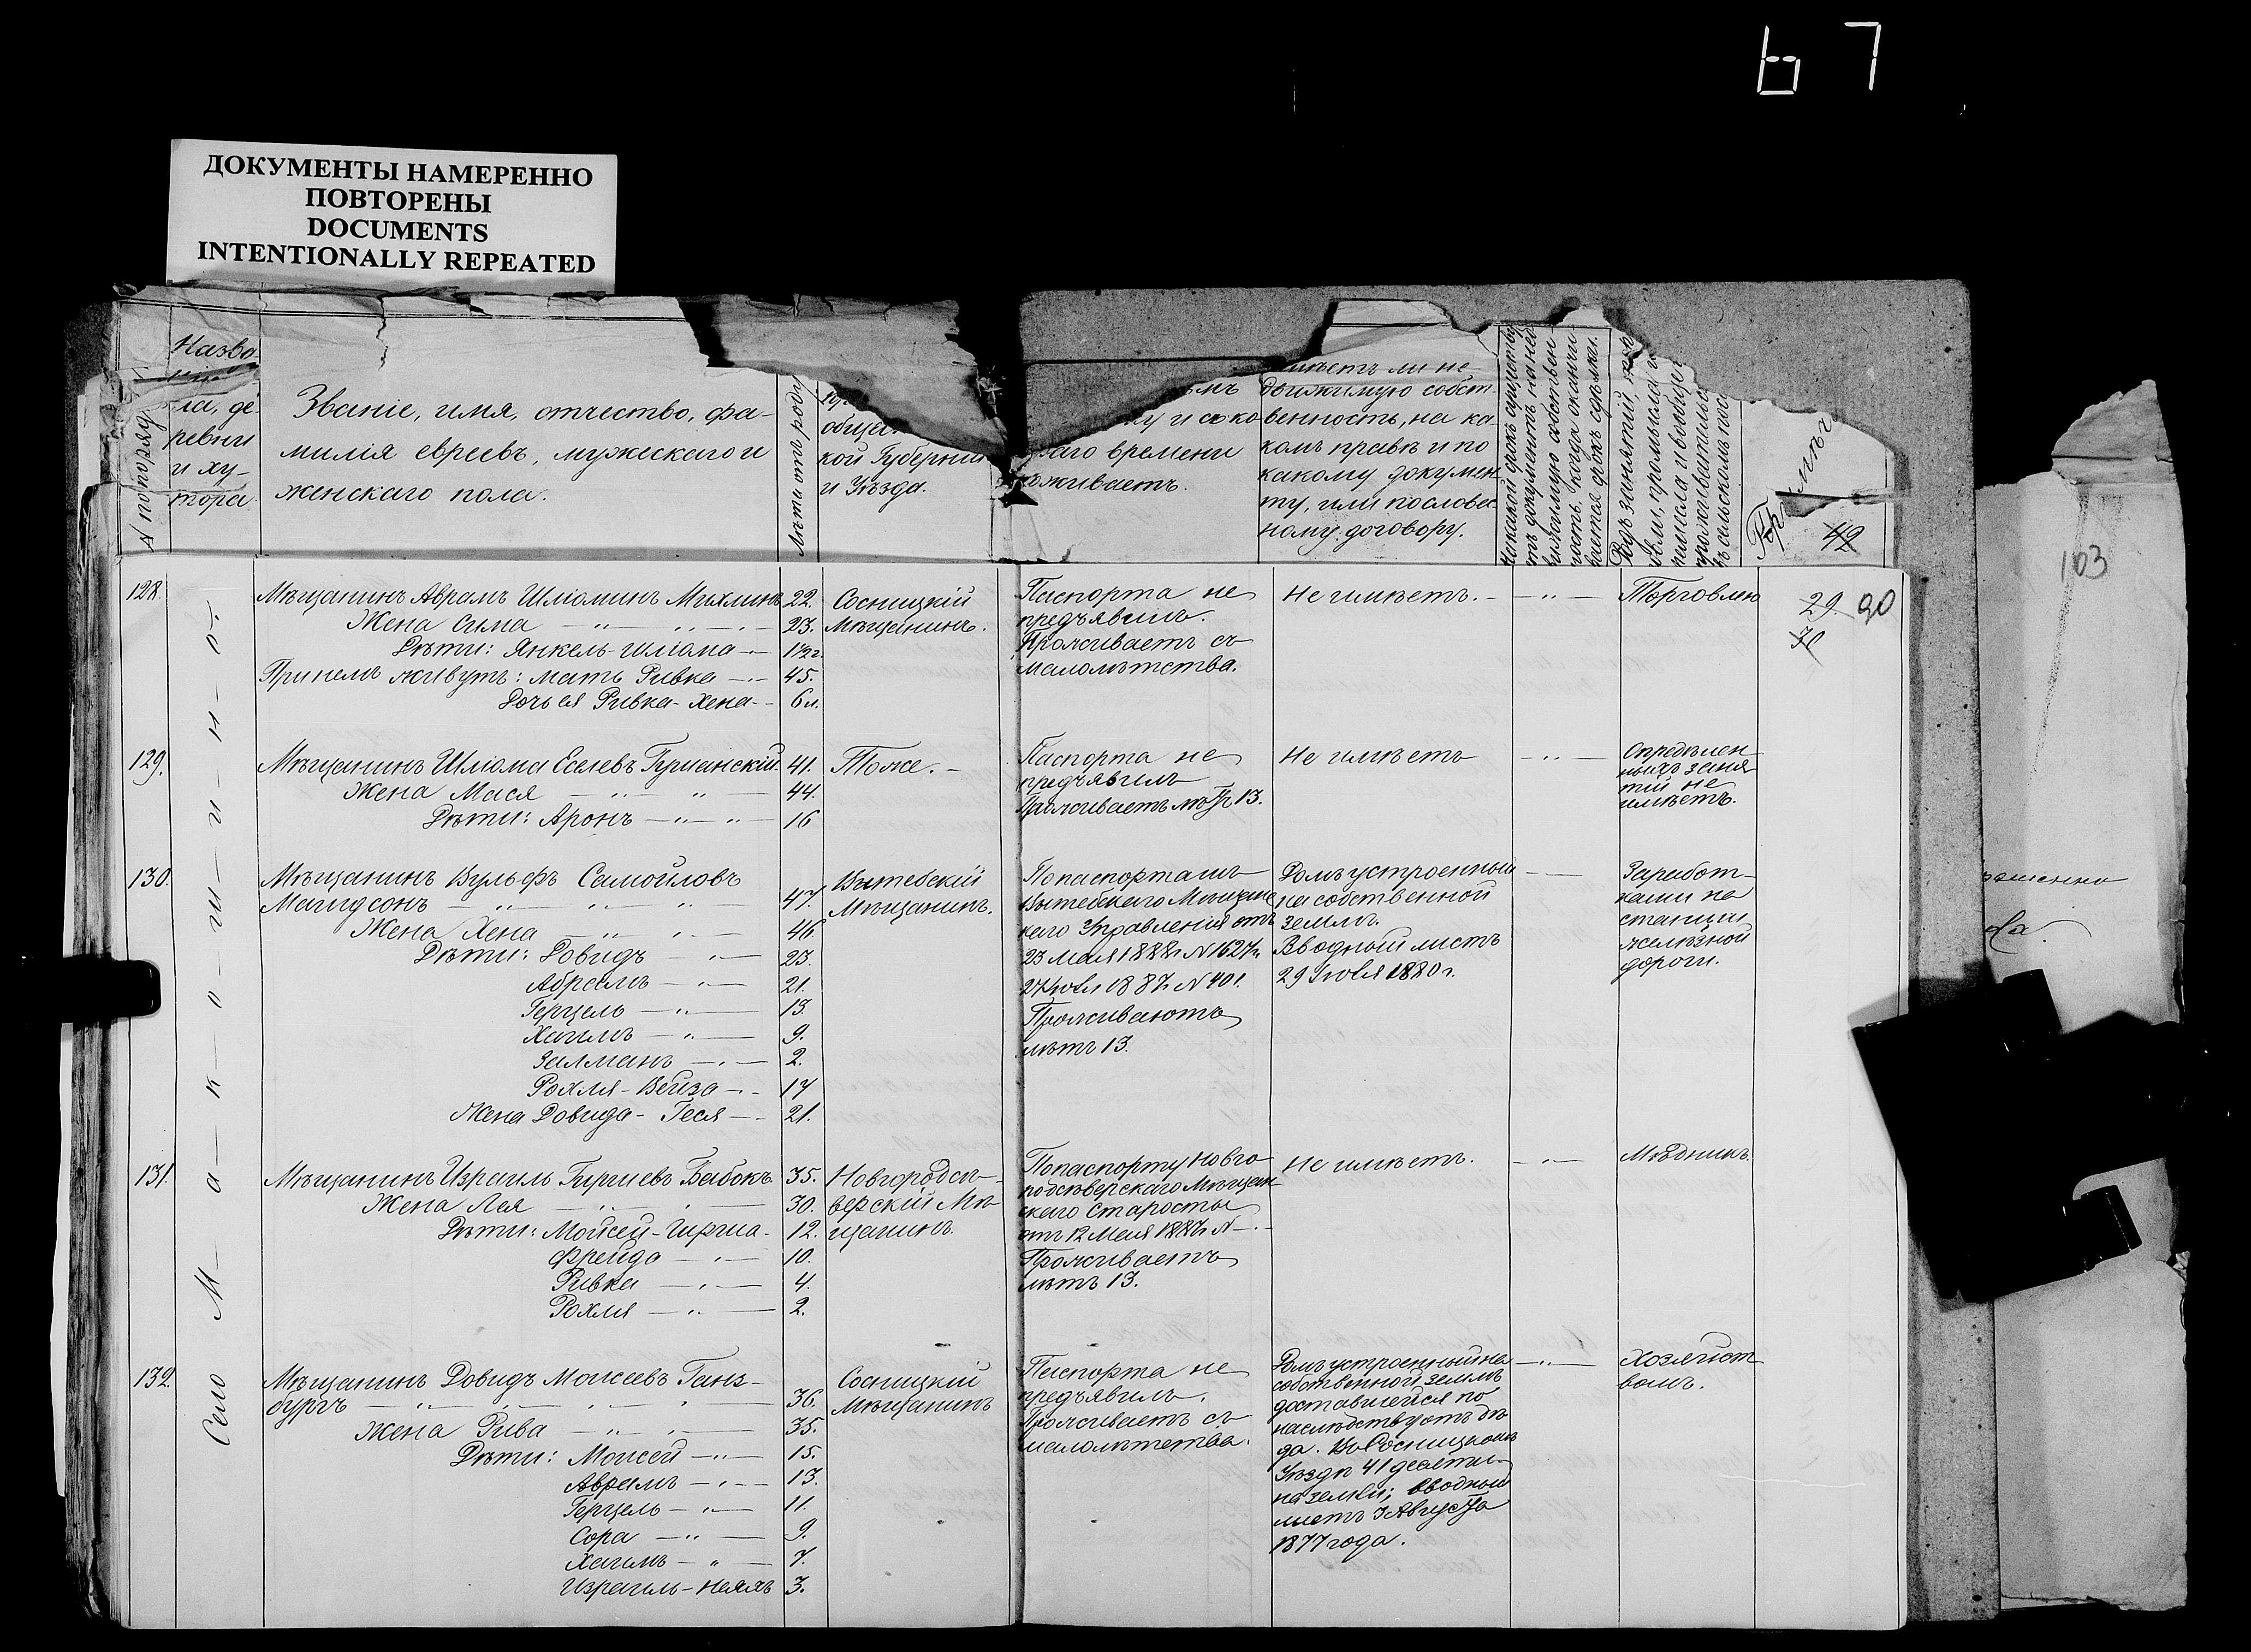 67
ДОКУМЕНТЫ НАМЕРЕННО
ПОВТОРЕНЫ
DOCUMENTS
INTENTIONALLY REPEATED
№ по поряд
Назва
ла, де-
ревни
и ху-
тора.
Званіе, имя, отчество, фа-
милія евреевъ, мужескаго и
женскаго пола.
Лѣтъ отъ роду
общес
кой Губерніи
и Уѣзда.
аго времени
оживаетъ.
имѣетъ ли не-
движимую собст-
венность, на ка-
комъ правѣ и по
какому докумен-
ту, или по словес-
ному договору.
49
103
Село М-а-к-о-ш-и-н-о
128. Мѣщанинъ Аврамъ Шлюминъ Михлинъ 22. Сосницкій
Жена Сима 23. Мѣщанинъ.
Дѣти: Янкель-Шлюма 1½ г.
При немъ живутъ: Мать Ривка 45.
Дочь ея Ривка-Хена 6 л.
Паспорта не
предъявилъ.
Проживаетъ съ
малолѣтства.
Не имѣетъ.
Торговлю
29. 90
129. Мѣщанинъ Шлюма Еселевъ Гуманскій 41. Тоже.
Жена Мася 44.
Дѣти: Аронъ 16
Паспорта не
предъявилъ
Проживаетъ лѣтъ 13.
Не имѣетъ
Опредѣлен
ныхъ заня
тій не
имѣетъ.
130. Мѣщанинъ Вульфъ Самойловъ
Магидсонъ 47.
Витебскій
Мѣщанинъ.
Жена Хена 46
Дѣти: Довидъ 23.
Абрамъ 21.
Герцель 13.
Хаимъ 9.
Залманъ 2.
Рохля-Бейза 17
Жена Довида-Геся 21.
По паспортамъ
Витебскаго Мѣщанс
каго Управленія отъ
23 Мая 1888г. №1627 и
№ 401.
Проживаютъ
лѣтъ 13.
Домъ устроенный
на собственной
землѣ.
Вводный листъ
29 Іюля 1880 г.
Заработ-
ками на
станціи
желѣзной
дороги.
131. Мѣщанинъ Израиль Гиршевъ Бабокъ 35. Новгородсѣ-
Жена Лея 30. верскій Мѣ-
Дѣти: Мойсей-Гирша 12. щанинъ.
Фрейда 10.
Ривка 4.
Рохля 2.
По паспорту Новго
родсѣверскаго Мѣщан
скаго Старосты
отъ 12 Мая 1887г. №
Проживаетъ
лѣтъ 13.
Не имѣетъ.
Мѣдникъ.
132. Мѣщанинъ Довидъ Моисеевъ Ганз-
бургъ 36.
Сосницкій
Мѣщанинъ
Жена Рива 35.
Дѣти: Моисей 15.
Аврамъ 13.
Герцель 11.
Сора 9.
Хаимъ 7.
Израиль-Неяхъ 3.
Паспорта не
предъявилъ.
Проживаетъ съ
малолѣтства.
Домъ устроенный на
собственной землѣ
доставшейся по
наслѣдству отъ дѣ
да. Въ Сосницкомъ
Уѣздѣ 41 десяти-
на земли; вводный
листъ 3 Августа
1877 года.
Хозяйст-
вомъ.